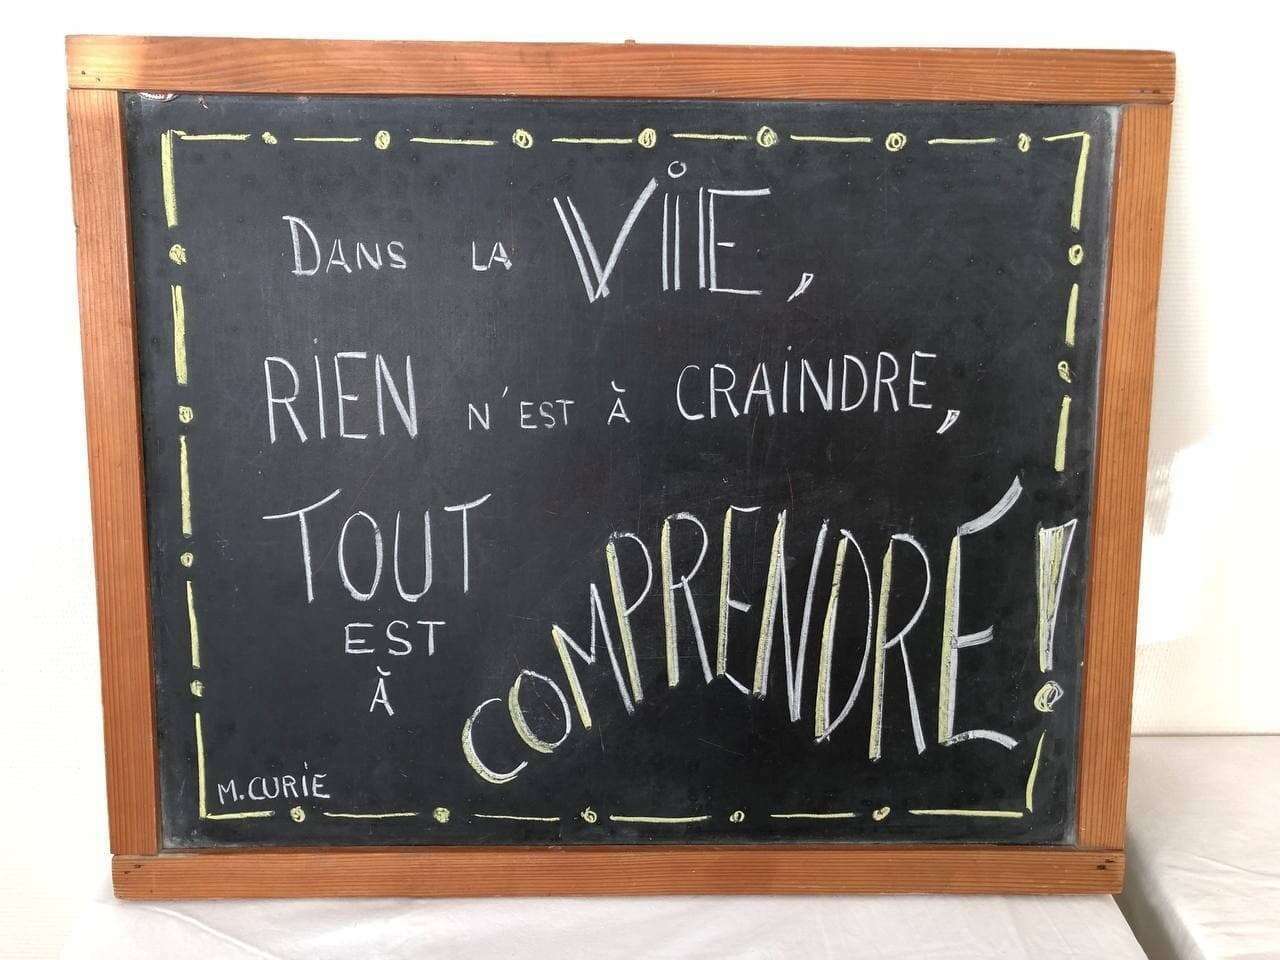 DANS LA ViE,
RiEN N'EST À CRAiNDRE,
TOUT
EST
À
COMPRENDRE!
M. CURiE